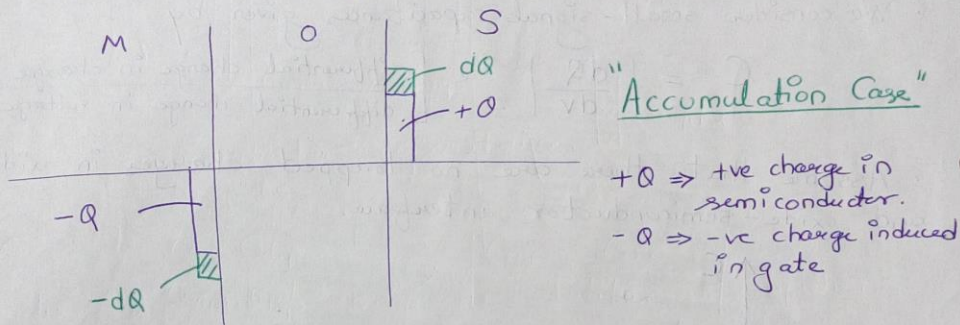 M
O
S
dQ
+Q
"Accumulation Case"
-Q
-dQ
+Q ⇒ +ve charge in
semiconductor.
-Q ⇒ -ve charge induced
in gate